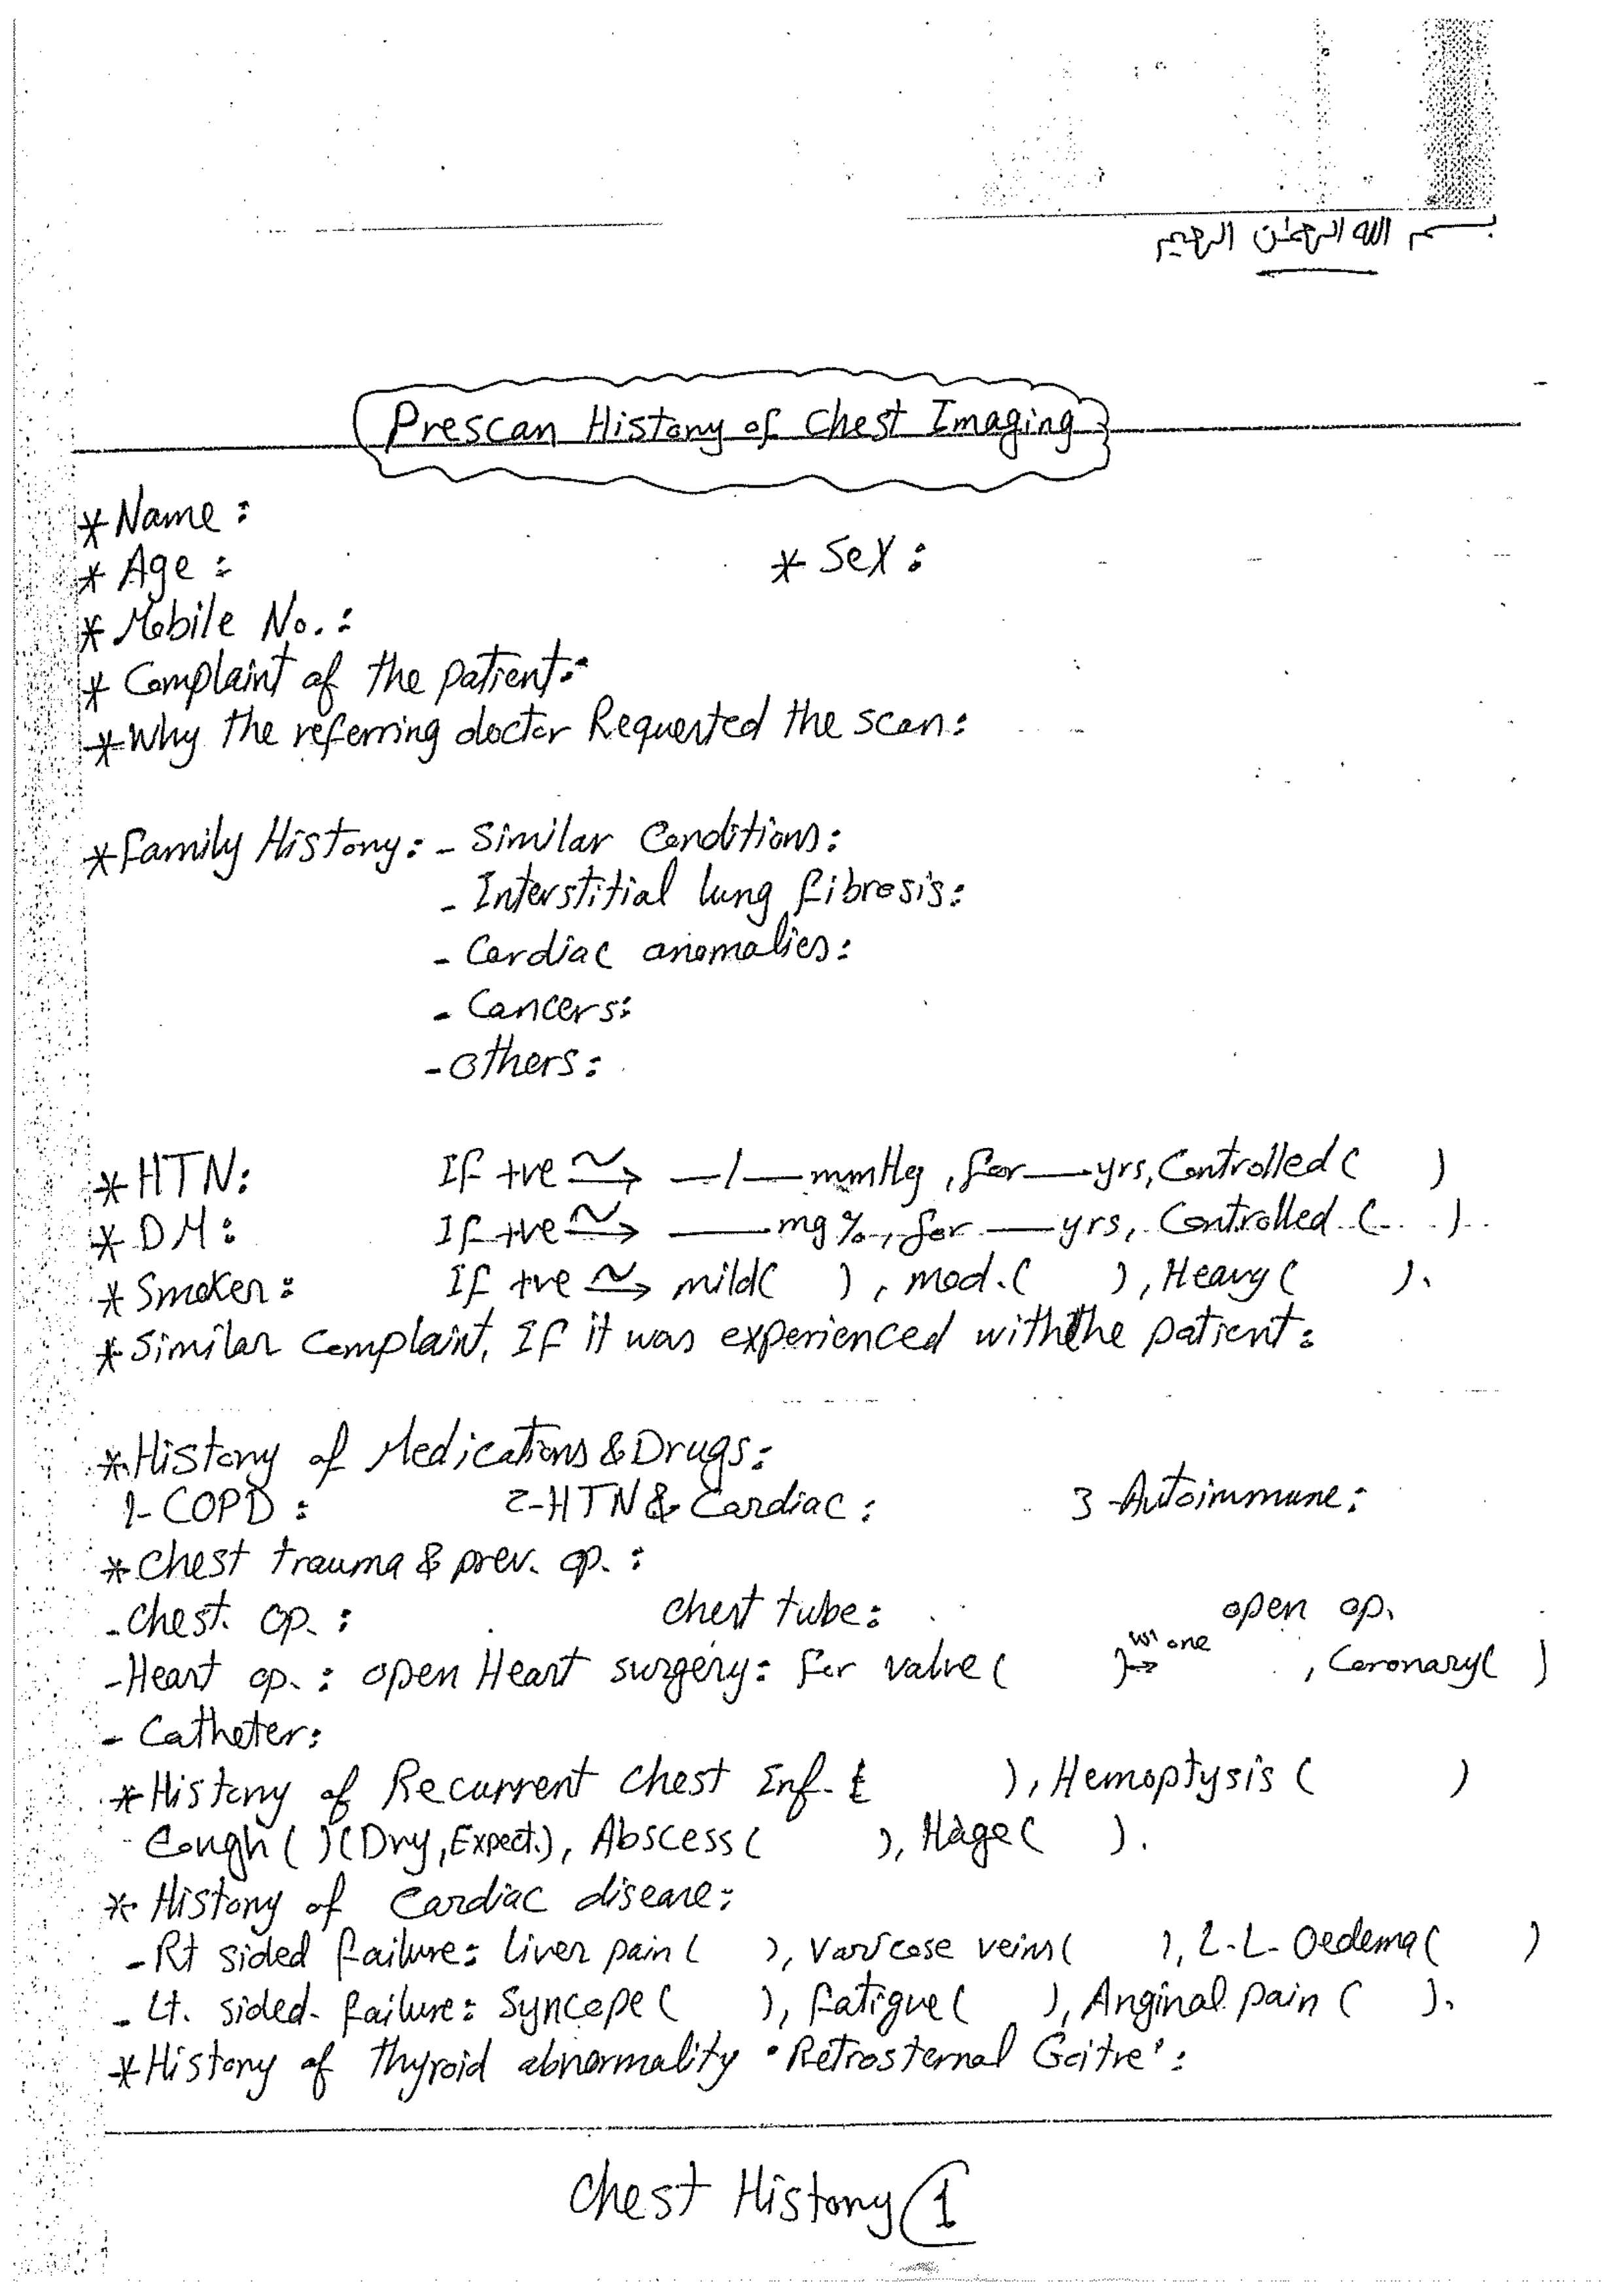 بسم الله الرحمن الرحيم
Prescan History of Chest Imaging
* Name :
* Age : * Sex :
* Mobile No. :
* Complaint of the patient:
* Why the referring doctor Requested the scan:
* Family History: - Similar Conditions:
- Interstitial lung fibrosis:
- Cardiac anomalies:
- Cancers:
- Others:
* HTN: If +ve ⇒ —/— mmHg, for — yrs, Controlled ( )
* DM: If +ve ⇒ — mg%, for — yrs, Controlled ( ).
* Smoker: If +ve ⇒ mild( ), mod.( ), Heavy( ).
* Similar Complaint, If it was experienced with the patient:
* History of Medications & Drugs:
1- COPD : 2- HTN & Cardiac : 3- Autoimmune:
* Chest trauma & prev. op. :
- Chest. op. : chest tube: open op.
- Heart op. : open Heart surgery: for valve ( )→ one , Coronary( )
- Catheter:
* History of Recurrent chest Inf. ( ), Hemoptysis ( )
Cough ( )(Dry, Expect.), Abscess ( ), Hage ( ).
* History of Cardiac disease:
- Rt sided failure: Liver pain ( ), Varicose veins ( ), L.L. Oedema ( )
- Lt. sided failure: Syncope ( ), fatigue ( ), Anginal pain ( ).
* History of thyroid abnormality "Retrosternal Goitre":
Chest History 1